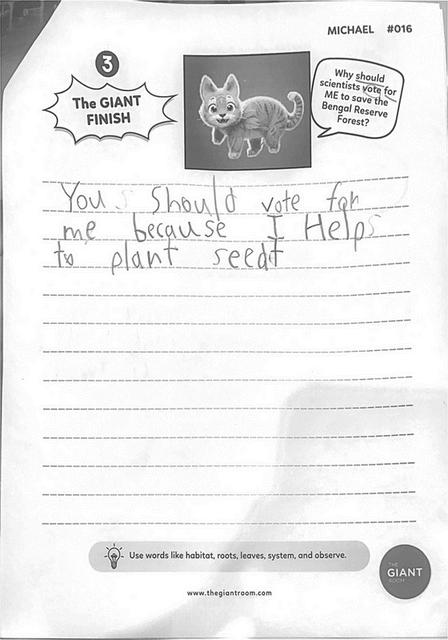 MICHAEL #016
3
The GIANT
FINISH
Why should
scientists vote for
ME to save the
Bengal Reserve
Forest?
You should vote for
me because I Helps
to plant seedt
Use words like habitat, roots, leaves, system, and observe.
THE
GIANT
ROOM
www.thegiantroom.com